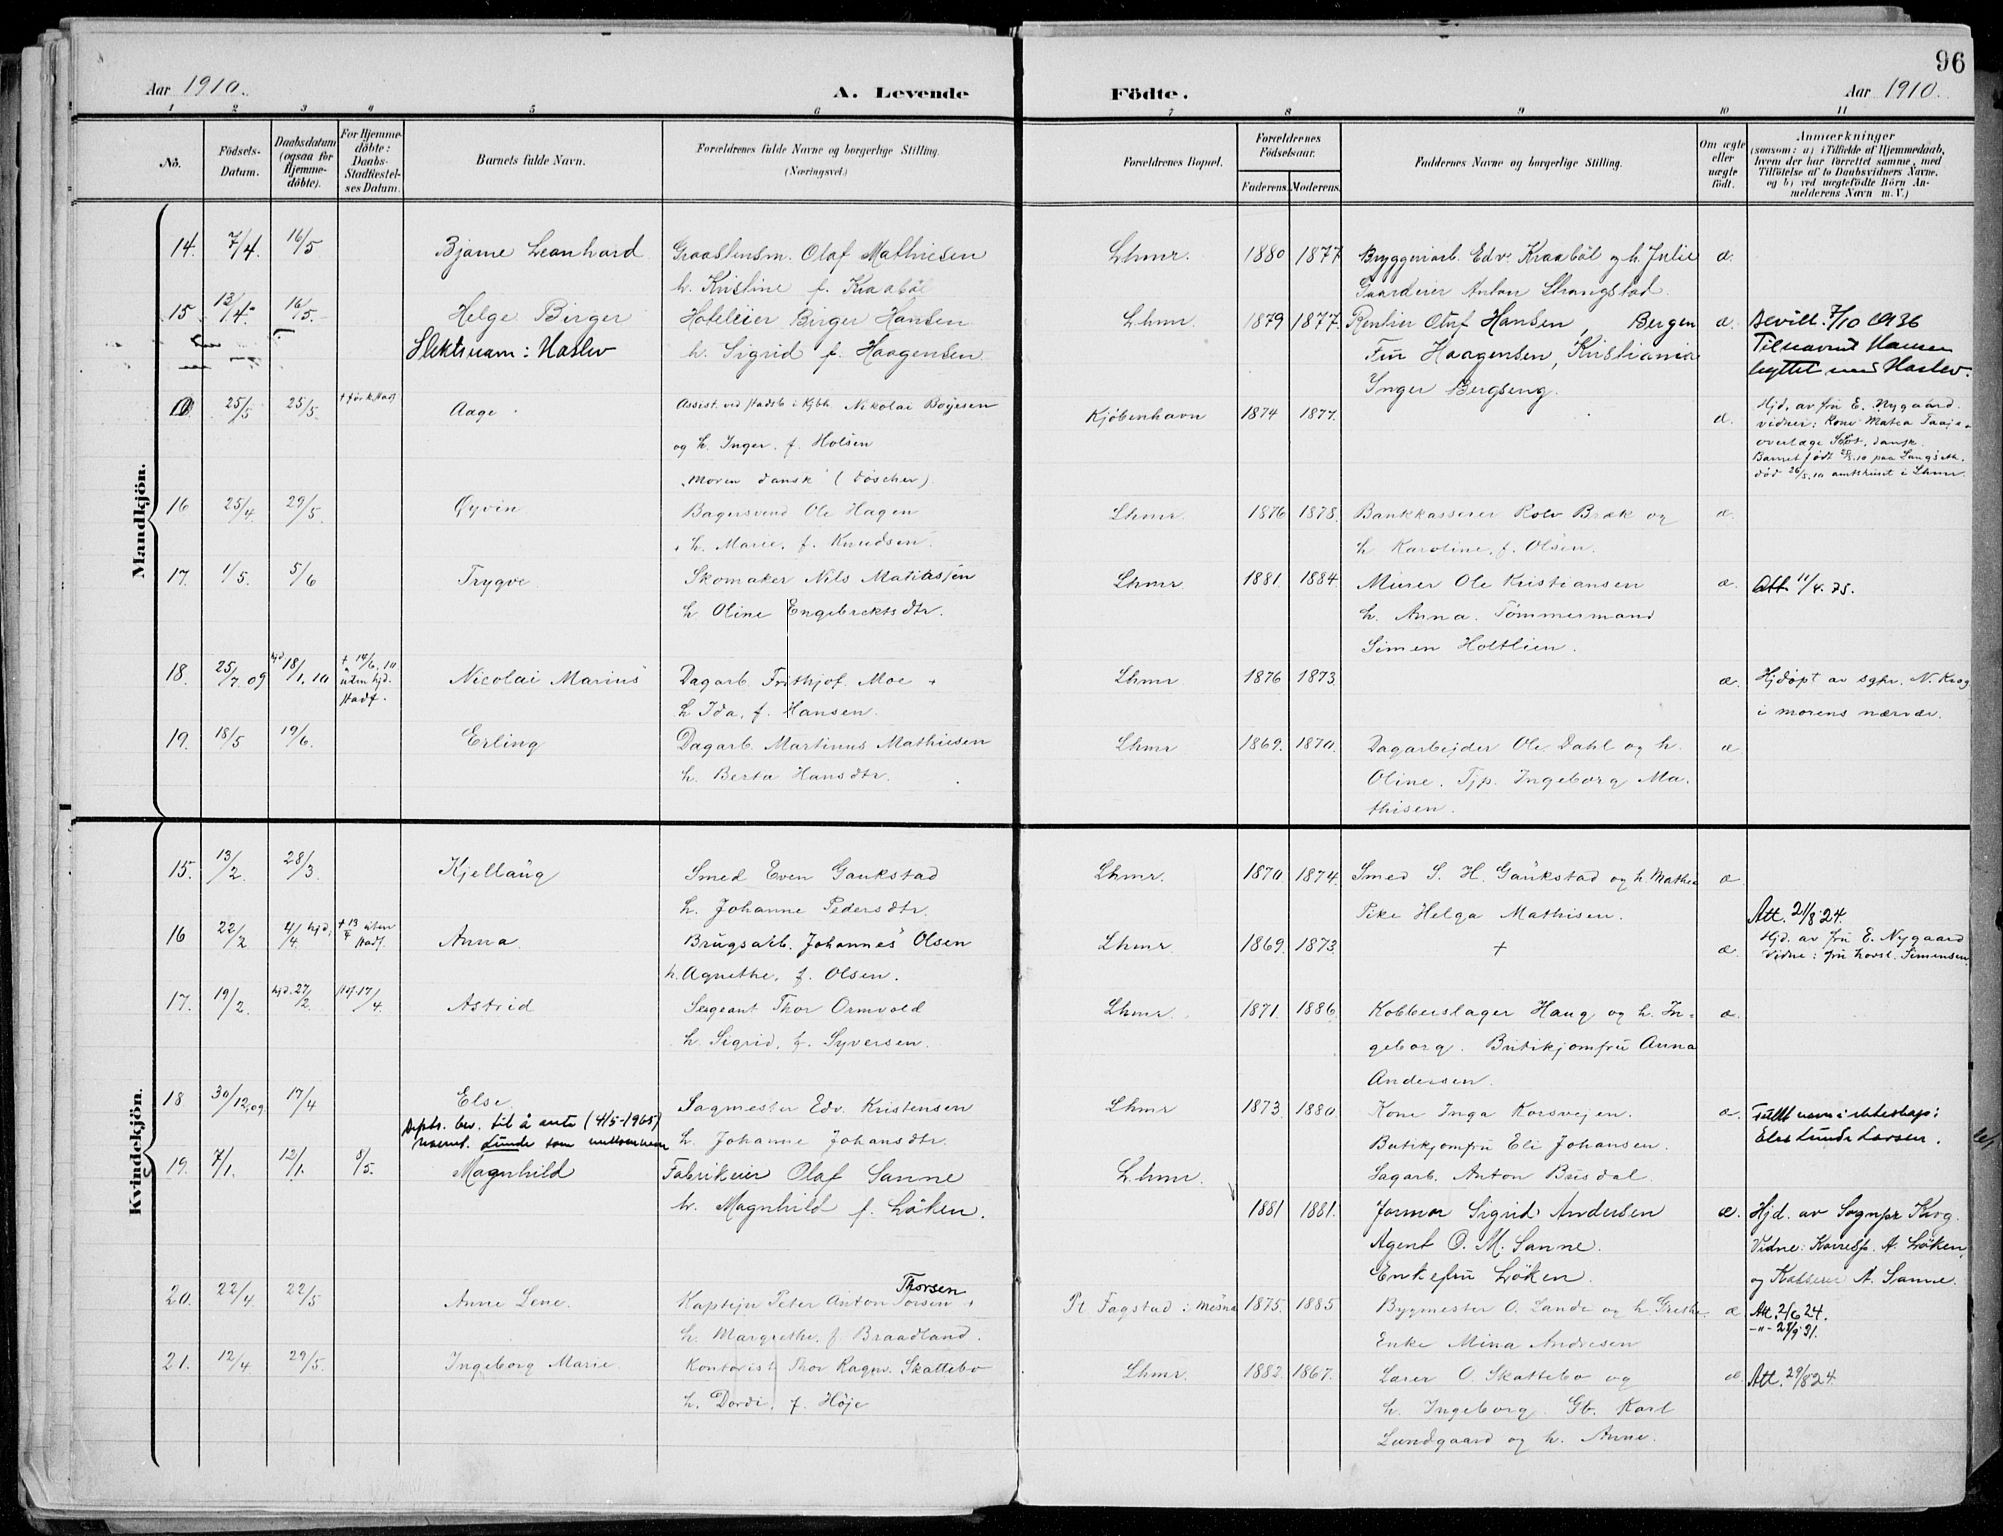 96
Aar 1910.
A. Levende
Födte.
Aar 1910.
1 2 3 4 5 6 7 8 9 10 11
Nö.
Födsels-
Datum.
Daabsdatum
(ogsaa for
Hjemme-
döbte).
For Hjemme-
döbte:
Daabs-
Stadfæstel-
ses Datum.
Barnets fulde Navn.
Forældrenes fulde Navne og borgerlige Stilling.
(Næringsvei.)
Forældrenes Bopæl.
Forældrenes
Födselsaar.
Faderens.
Moderens.
Faddernes Navne og borgerlige Stilling.
Om ægte
eller
uægte
födt.
Anmærkninger
(saasom: a) i Tilfælde af Hjemmedaab,
hvem der har forrettet samme, med
Tilföielse af to Daabsvidners Navne,
og b) ved uægtefödte Börn An-
melderens Navn m. V.)
Mandkjön.
14. 7/4. 16/5 Bjarne Leonhard Graastensm. Olaf Mathiesen Lhmr. 1880 1877 Bryggeriarb. Edv. Kraabøl og h. Julie æ.
h. Kristine f. Kraabøl Gaardeier Anton Strangstad.
15 13/4. 16/5. Helge Birger Hoteleier Birger Hansen Lhmr. 1879 1877. Rentier Oluf Hansen, Bergen æ. Bevill. 7/10 1936
Slektsnam: Haslev h. Sigrid f. Haagensen Fru Haagensen, Kristiania Tilnavnet Hansen
Inger Bergseng. byttet med Haslev.
25/5 25/5. Aage. Assist. ved stadsb i Kjbh. Nikolai Boyesen Kjøbenhavn 1874 1877. æ. Hjd. av fru E. Nygaard.
og h. Inger, f. Holsen vidner: Kone Matea
Moren dansk overlæge dansk.
Barnet født 25/5.10 paa
død 26/5.10 amtshuset i Lhmr.
16 25/4. 29/5. Øyvin Bagersvend Ole Hagen Lhmr. 1876 1878. Bankkasserer Rolv Bræk og æ.
h. Marie, f. Knudsen. h. Karoline, f. Olsen.
17. 1/5. 5/6 Trygve. Skomaker Nils Matiasjen Lhmr 1881 1884 Murer Ole Kristiansen æ. Att. 11/4.75.
h. Oline Engebrektsdtr. h. Anna. Tømmermand
Simen Holtlien.
18. 25/7.09 hjd. 18/1.10 + 14/6.10 uten hjd. stadf. Nicolai Marius Dagarb. Frithjof Moe + Lhmr 1876 1873. æ. Hjdøpt av sgpr. N. Krog
h Ida, f. Hansen. i morens nærvær.
19. 18/5 19/6. Erling Dagarb. Martinus Mathiesen Lhmr 1869. 1870. Dagarbejder Ole Dahl og h. æ
h. Berta Hansdtr. Oline. Tjp. Ingeborg Ma-
thisen.
Kvindekjön.
15. 13/2 28/3. Kjellaug Smed Even Gaukstad Lhmr. 1870. 1874. Smed S. H. Gaukstad og h. Mathea æ
h. Johanne Pedersdtr. Pike Helga Mathisen. Att. 21/8 24.
16 22/2 4/4 hjd. + 13/4 uten stadf. Anna. Brugsarb. Johannes Olsen Lhmr 1869. 1873. + æ. Hjd. av fru E. Nygaard
h. Agnethe, f. Olsen. Vidne: fru Simensen.
17. 19/2. hjd. 27/2 stf. 17/4. Astrid Sergeant Thor Ormvold Lhmr. 1871. 1886. Kobberslager Haug og h. In- æ.
h. Sigrid, f. Syversen. geborg. Butikjomfru Anna
Andersen.
18 30/12,09. 17/4 Else. Sagmester Edv. Kristensen Lhmr 1873. 1880. Kone Inga Korsvejen. æ. Fullt navn i ekteskap:
Depts. bev. til å anta (4/5-1965) h. Johanne Johansdtr. Butikjomfru Eli Johansen. Else Lunde Larsen.
navnet Lunde som mellomnavn
19. 7/1. 12/1. 8/5. Magnhild Fabrikeier Olaf Sanne Lhmr. Sagarb. Anton Brisdal.
h. Magnhild f. Løken. 1881 1881. Jormor Sigrid Andersen æ. Hjd. av Sognpr Krog.
Agent O. M. Sanne. Vidne: Korresp. A. Løken,
Enkefru Løken. og Kasserer A. Sanne.
20. 22/4. 22/5 Anne Lene. Kaptejn Peter Anton Torsen + Thorsen Pt. Fagstad i Mesna 1875. 1885 Bygmester O. Lande og h. Grethe æ Att. 2/6 24.
h. Margrethe, f. Braadland. Enke Mina Andresen -"- 28/9 31.
21. 12/4 29/5. Ingeborg Marie. Kontorist Thor Ragnv. Skattebo Lhmr. 1882. 1867. Lærer O. Skattebo og æ Att. 29/8 24.
h. Dordi, f. Høje h. Ingeborg. Gb. Karl
Lundgaard og h. Anne.